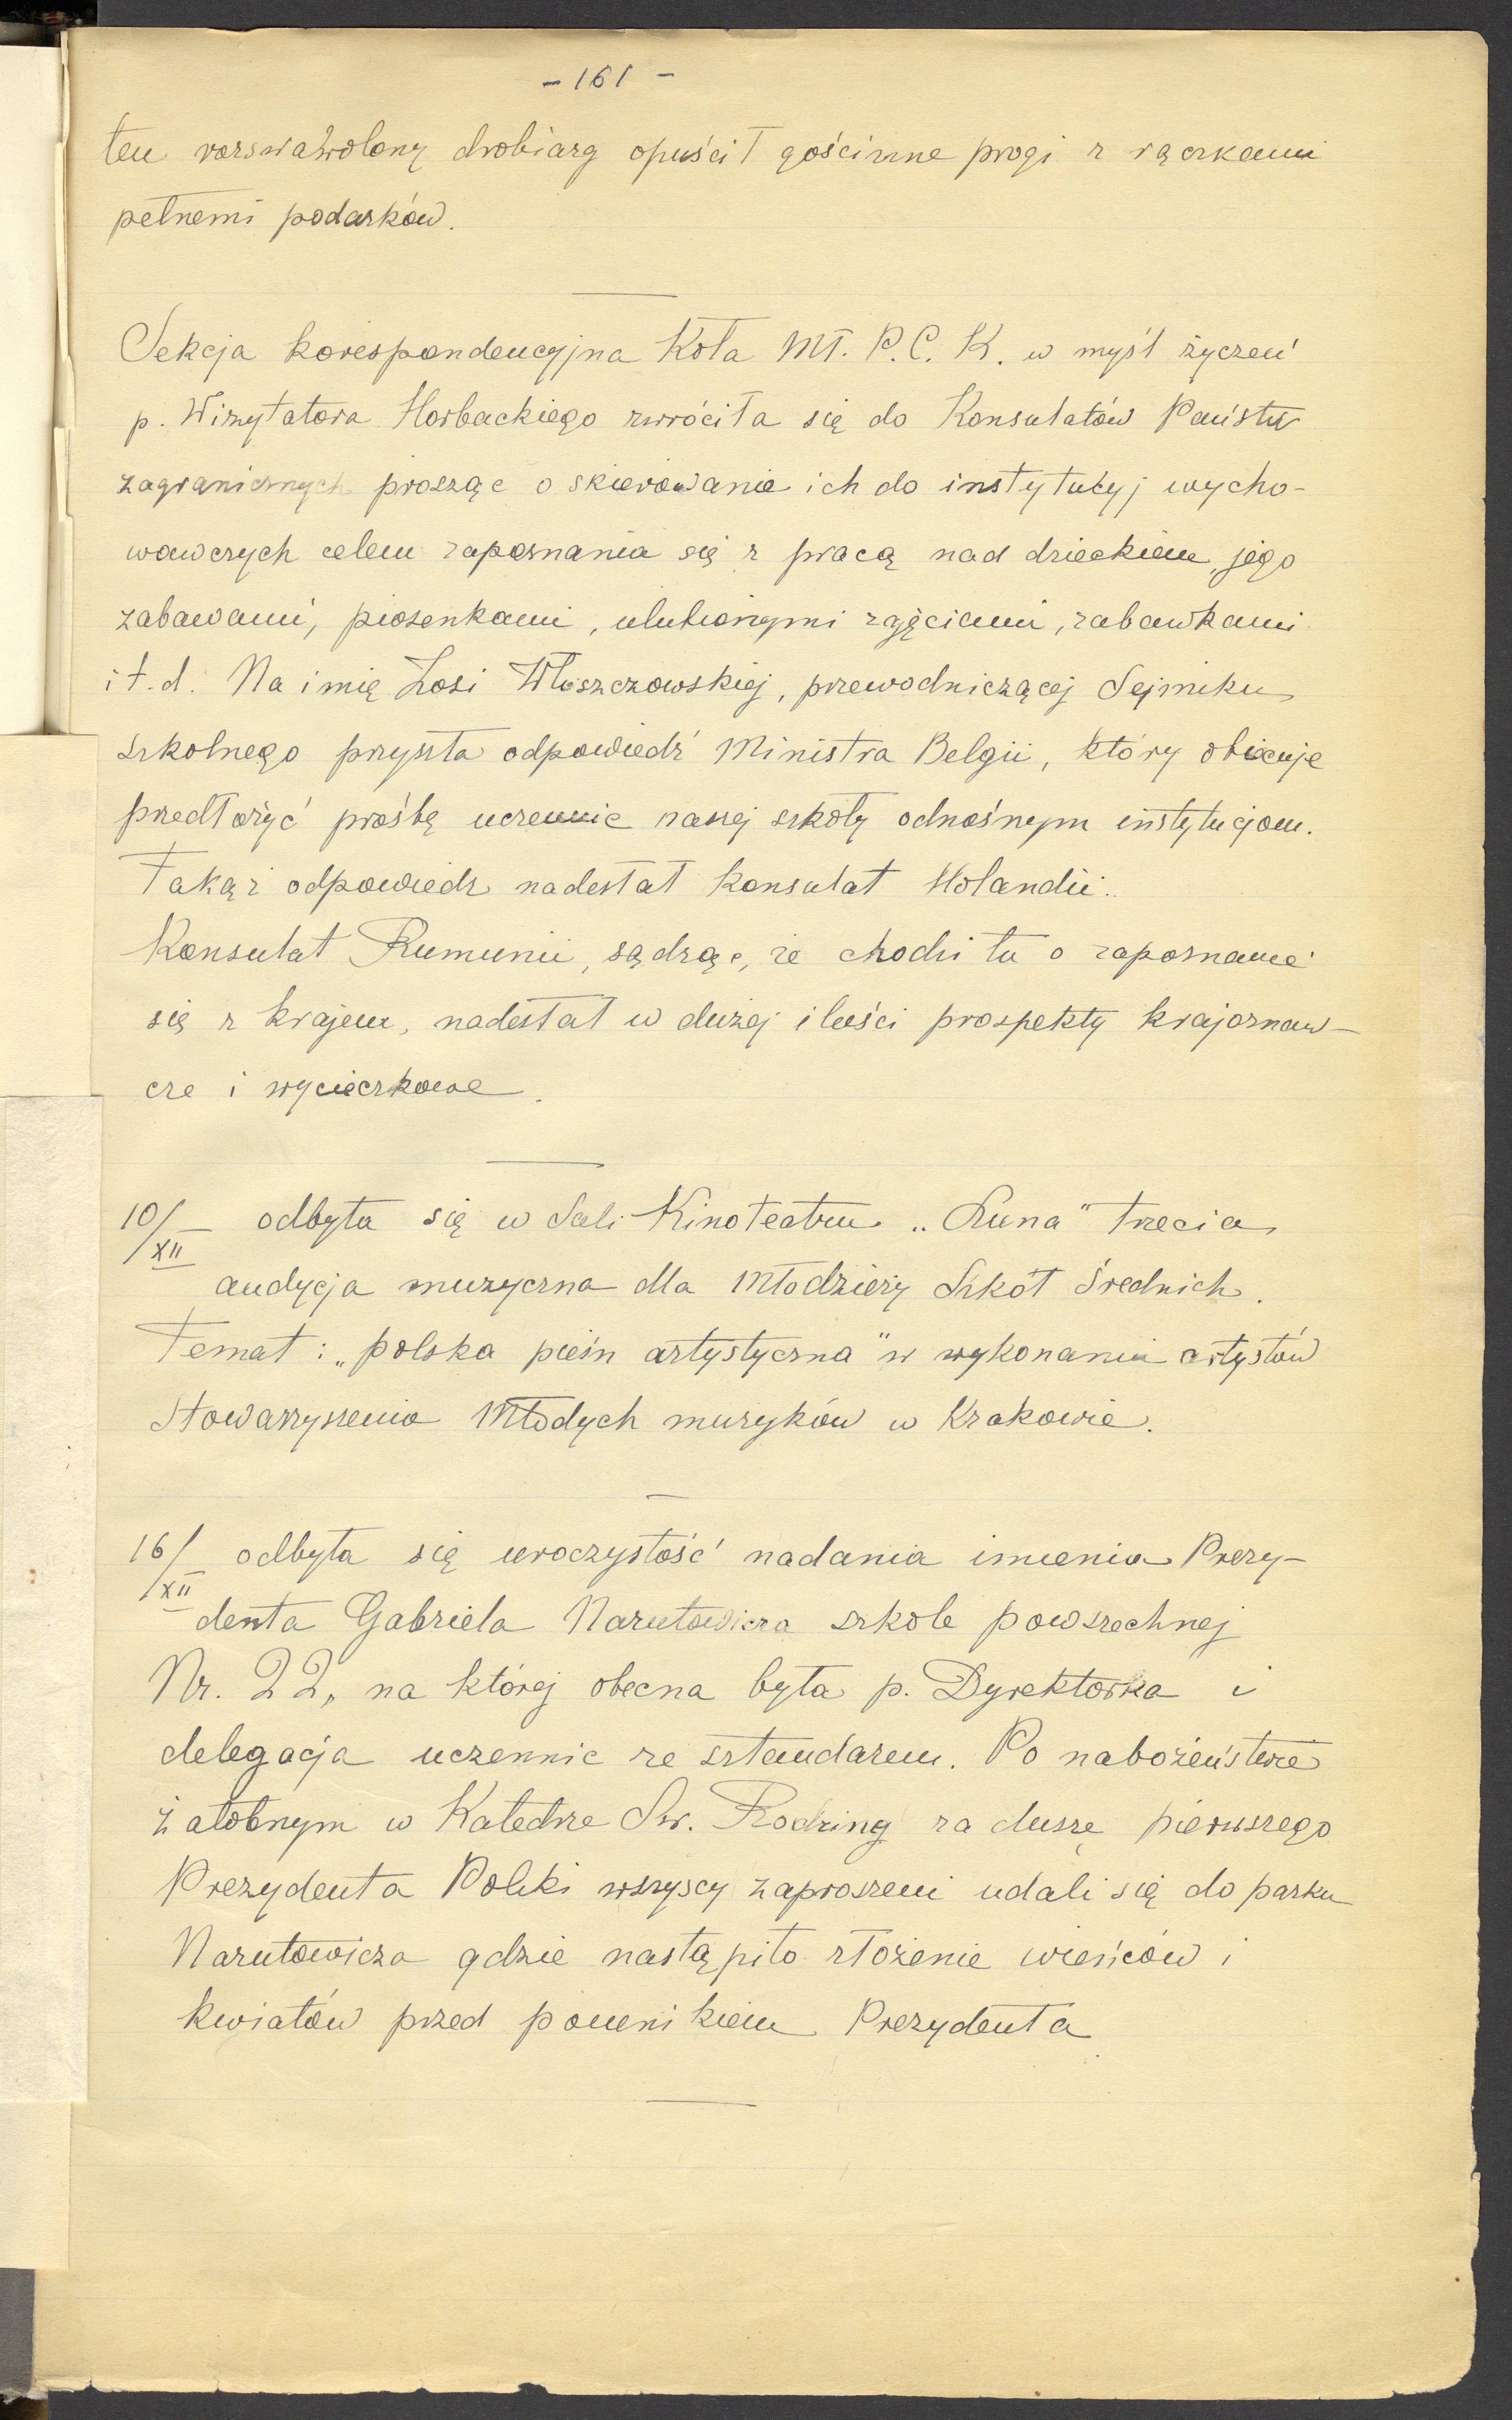 - 161 -
ten rozswawolony drobiazg opuścił gościnne progi z rączkami
pełnemi podarków.
Sekcja korespondencyjna Koła Mł. P. C. K. w myśl życzeń
p. Wizytatora Horbackiego zwróciła się do Konsulatów Państw
zagranicznych prosząc o skierowanie ich do instytucyj wycho-
wawczych celem zapoznania się z pracą nad dzieckiem, jego
zabawami, piosenkami, ulubionymi zajęciami, zabawkami
i t. d. Na imię Zosi Włoszczowskiej, przewodniczącej Sejmiku
szkolnego przyszła odpowiedź Ministra Belgii, który obiecuje
przedłożyć prośbę uczennic naszej szkoły odnośnym instytucjom.
Taką ż odpowiedź nadesłał konsulat Holandii.
Konsulat Rumunii, sądząc, że chodzi tu o zapoznanie
się z krajem, nadesłał w dużej ilości prospekty krajoznaw-
cze i wycieczkowe.
10/XII odbyła się w Sali Kinoteatru „Luna" trzecia
audycja muzyczna dla Młodzieży Szkół Średnich.
Temat: „polska pieśń artystyczna" w wykonaniu artystów
Stowarzyszenia Młodych muzyków w Krakowie.
16/XII odbyła się uroczystość nadania imienia Prezy-
denta Gabriela Narutowicza szkole powszechnej
Nr. 22, na której obecna była p. Dyrektorka i
delegacja uczennic ze sztandarem. Po nabożeństwie
żałobnym w Katedrze Św. Rodziny za duszę pierwszego
Prezydenta Polski wszyscy zaproszeni udali się do parku
Narutowicza gdzie nastąpiło złożenie wieńców i
kwiatów przed pomnikiem Prezydenta